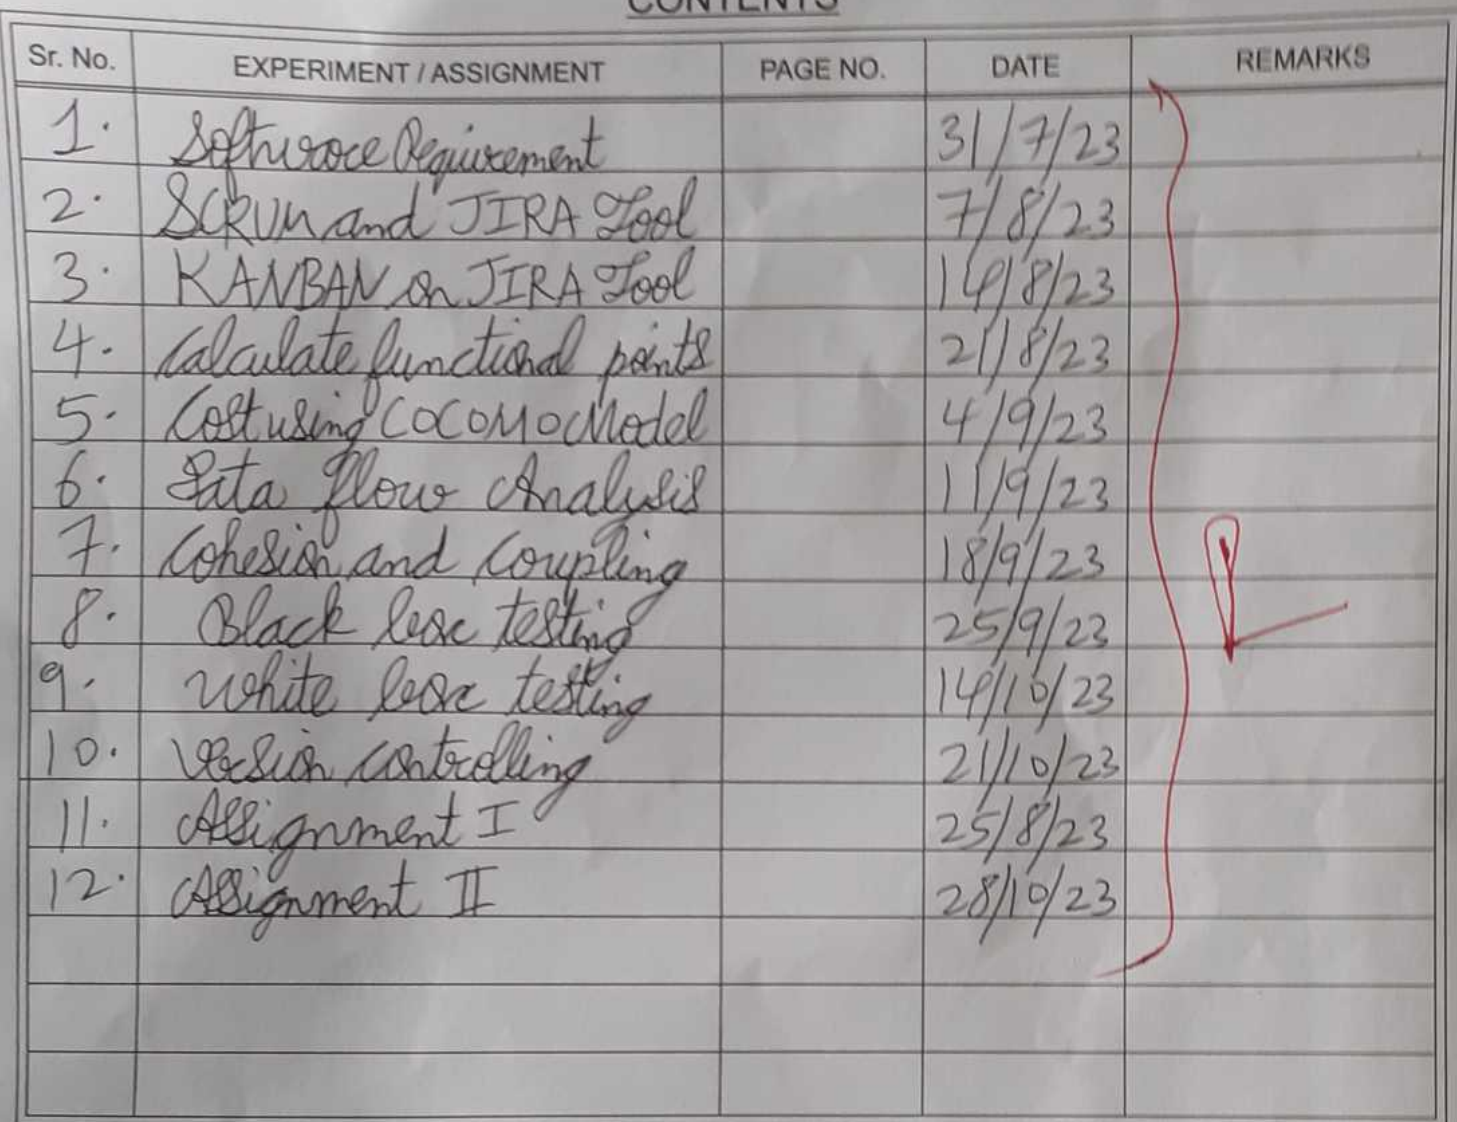 CONTENTS
Sr. No. EXPERIMENT / ASSIGNMENT PAGE NO. DATE REMARKS
1. Software Requirement 31/7/23
2. SCRUM and JIRA Tool 7/8/23
3. KANBAN on JIRA Tool 14/8/23
4. Calculate functional points 21/8/23
5. Cost using COCOMO Model 4/9/23
6. Data flow Analysis 11/9/23
7. Cohesion and Coupling 18/9/23
8. Black box testing 25/9/23
9. White box testing 14/10/23
10. Version controlling 21/10/23
11. Assignment I 25/8/23
12. Assignment II 28/10/23